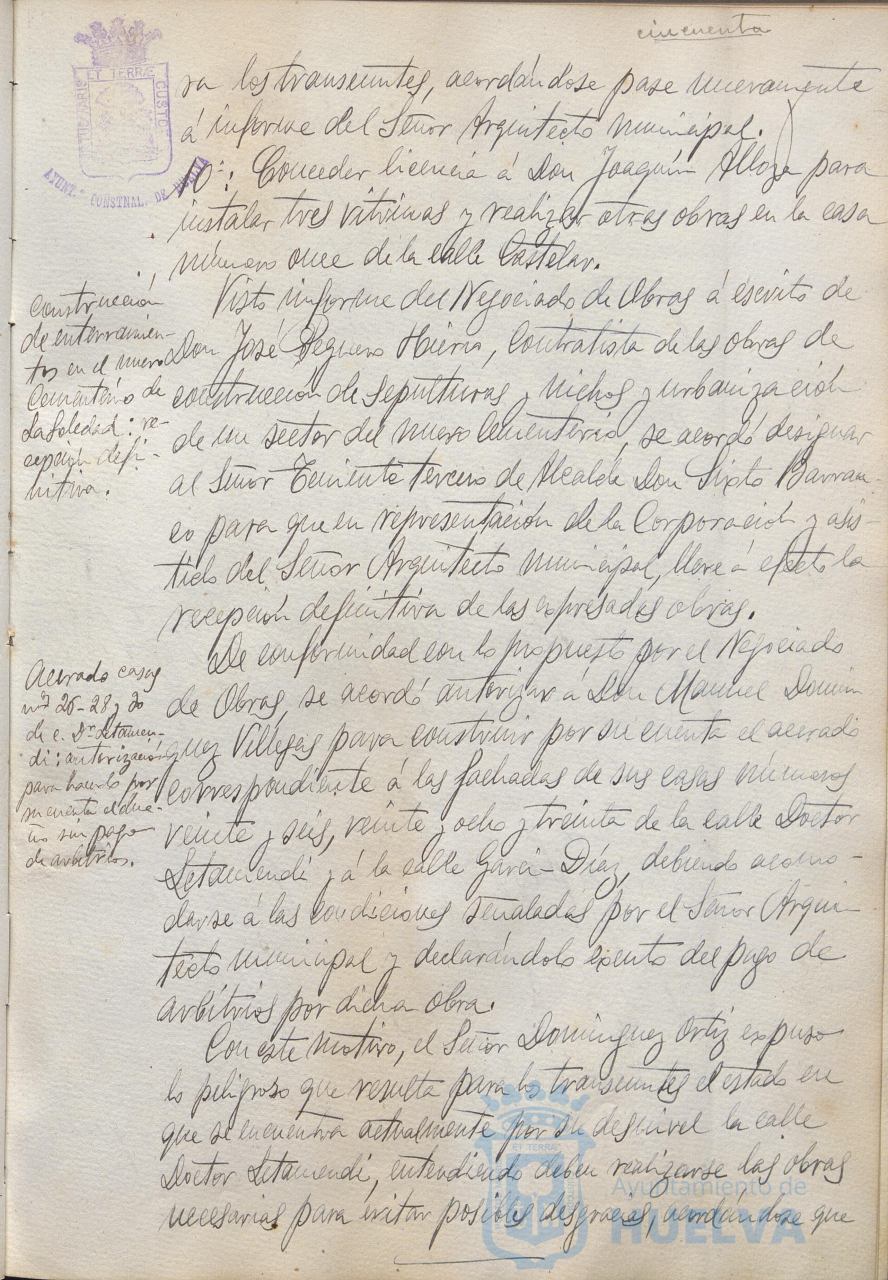 cincuenta
ET TERRÆ
PORTUS MARIS
CUSTO
AYUNT. CONSTNAL. DE HUELVA
ra los transeuntes, acordándose pase nuevamente
á informe del Señor Arquitecto municipal.
10º: Conceder licencia á Don Joaquín Alloza para
instalar tres vitrinas y realizar otras obras en la casa
número once de la calle Castelar.
Construcción
de enterramien-
tos en el nuevo
Cementerio de
La Soledad: re-
cepción defi-
nitiva.
Visto informe del Negociado de Obras á escrito de
Don José Peguero Hierro, Contratista de las obras de
construcción de sepulturas y nichos y urbanización
de un sector del nuevo Cementerio, se acordó designar
al Señor Teniente tercero de Alcalde Don Sixto Barran-
co para que en representación de la Corporación y asis-
tido del Señor Arquitecto municipal, lleve á efecto la
recepción definitiva de las expresadas obras.
Acerado casas
nos 26-28 y 30
de c. Dr. Letamen-
di: autorización
para hacerlo por
su cuenta el due-
ño sin pago
de arbitrios.
De conformidad con lo propuesto por el Negociado
de Obras, se acordó autorizar á Don Manuel Domin-
guez Villegas para construir por su cuenta el acerado
correspondiente á las fachadas de sus casas números
veinte y seis, veinte y ocho y treinta de la calle Doctor
Letamendi y á la calle Garci-Díaz, debiendo acomo-
darse á las condiciones señaladas por el Señor Arqui-
tecto municipal y declarándolo exento del pago de
arbitrios por dicha obra.
Con este motivo, el Señor Domínguez Ortiz expuso
lo peligroso que resulta para los transeuntes el estado en
que se encuentra actualmente por su desnivel la calle
Doctor Letamendi, entendiendo deben realizarse las obras
necesarias para evitar posibles desgracias, acordándose que
ET TERRÆ
Ayuntamiento de
HUELVA